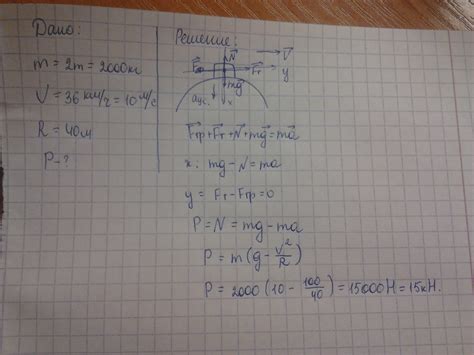 Дано:
m = 2m = 2000кг
V = 36 км/ч = 10 м/с
R = 40м
P - ?
Решение:
N
V
Fтр
Fт
y
mg
aцс
x
Fтр + Fт + N + mg = ma
x: mg - N = ma
y = Fт - Fтр = 0
P = N = mg - ma
P = m(g - V²/R)
P = 2000 (10 - 100/40) = 15000Н = 15кН.